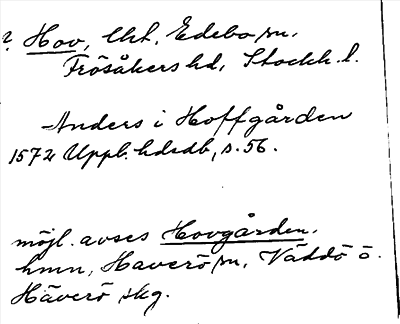 ? Hov, lht. Edebo sn,
Frösåkers hd, Stockh. l.
Anders i Hoffgården
1572 Uppl. hdrdb, s. 56.
möjl. avses Hovgården,
hmn, Haverö sn, Väddö ö.
Häverö skg.